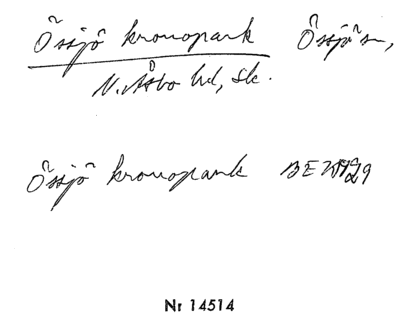 Össjö kronopark Össjö sn,
N. Åsbo hd, Sk.
Össjö kronopark
Nr 14514